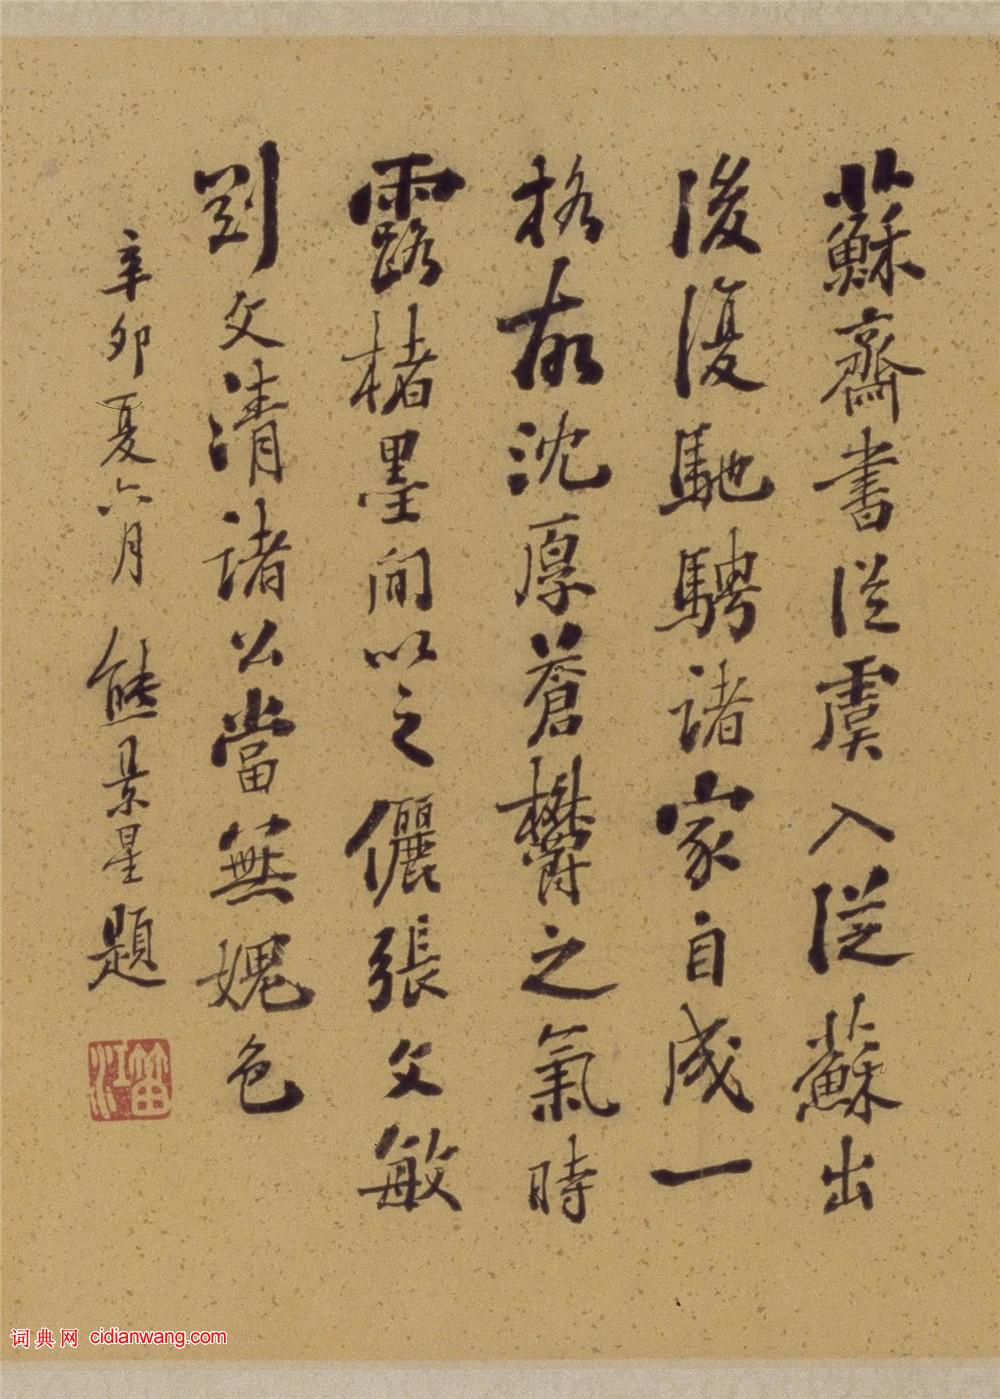 蘇齋書從虞入從蘇出
後復馳騁諸家自成一
格故沈厚蒼欝之氣時
露楮墨間以之儷張文敏
劉文清諸公當無媿色
辛卯夏六月 熊景星題
笛江
词典网 cidianwang.com